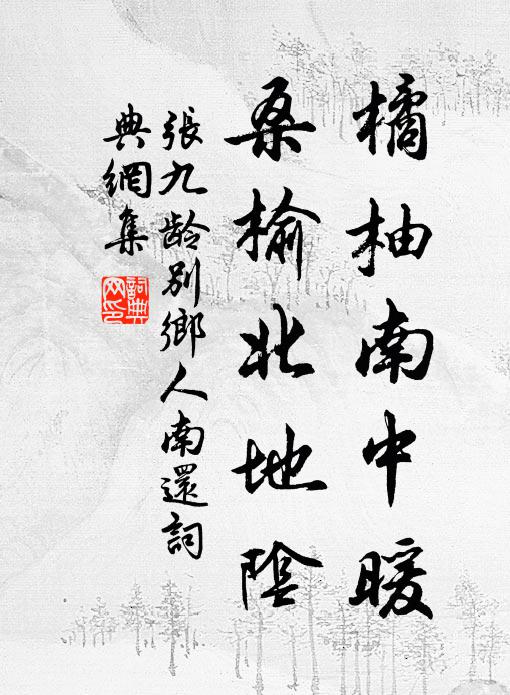 橘柚南中暖
桑榆北地陰
張九齡別鄉人南還詞
典網集
詞典
网印